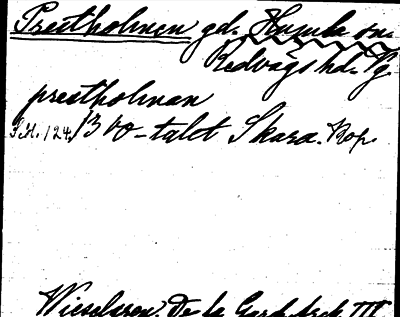 Prestholmen gd. Husula sn.
Redvägs hd. Vg.
prestholman
S.H. 124. 1300-talet Skara. Kop.
Wieselgren. De la Gard. Ark. III